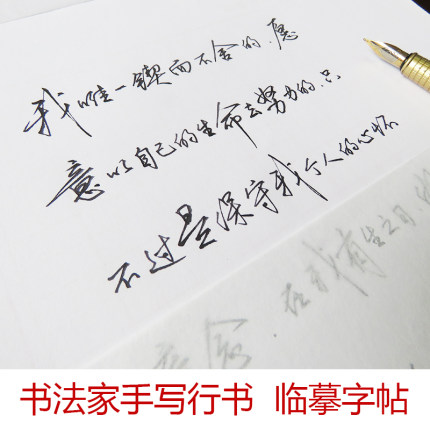 我唯一锲而不舍的.愿
意以自己的生命去努力的.只
不过是保守我个人的心怀
在我有生之日.
念
书法家手写行书 临摹字帖